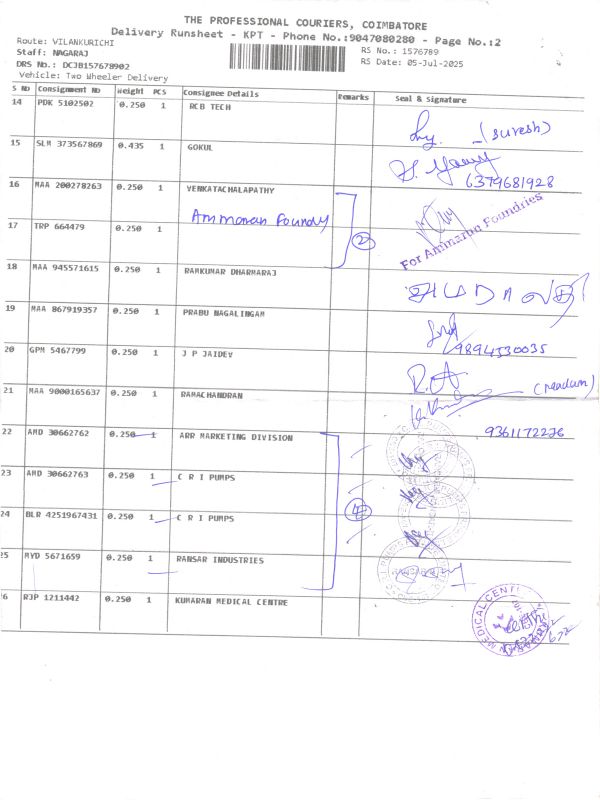 THE PROFESSIONAL COURIERS, COIMBATORE
Delivery Runsheet - KPT - Phone No.:9047080280 - Page No.:2
Route: VILANKURICHI
Staff: NAGARAJ
DRS No.: DCJB157678902
Vehicle: Two Wheeler Delivery
RS No.: 1576789
RS Date: 05-Jul-2025
S No Consignment No Weight PCS Consignee Details Remarks Seal & Signature
14 PDK 5102502 0.250 1 RCB TECH
(Suresh)
15 SLM 373567869 0.435 1 GOKUL
6379681928
16 MAA 200278263 0.250 1 VENKATACHALAPATHY
Ammanan Foundry
17 TRP 664479 0.250 1
2
For Ammarun Foundries
18 MAA 945571615 0.250 1 RAMKUMAR DHARMARAJ
19 MAA 867919357 0.250 1 PRABU NAGALINGAM
9894530035
20 GPM 5467799 0.250 1 J P JAIDEV
21 MAA 9000165637 0.250 1 RAMACHANDRAN
9361172276
22 AMD 30662762 0.250 1 ARR MARKETING DIVISION
23 AMD 30662763 0.250 1 C R I PUMPS
4
24 BLR 4251967431 0.250 1 C R I PUMPS
25 MYD 5671659 0.250 1 RANSAR INDUSTRIES
26 RJP 1211442 0.250 1 KUMARAN MEDICAL CENTRE
MEDICAL CENT